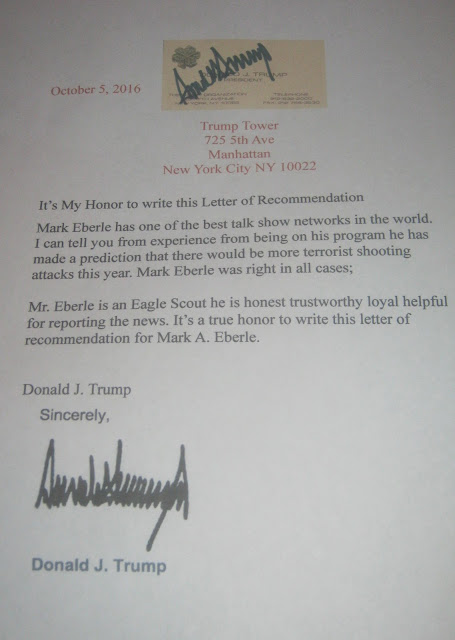 October 5, 2016
J. TRUMP
PRESIDENT
Trump Tower
725 5th Ave
Manhattan
New York City NY 10022
It's My Honor to write this Letter of Recommendation
Mark Eberle has one of the best talk show networks in the world.
I can tell you from experience from being on his program he has
made a prediction that there would be more terrorist shooting
attacks this year. Mark Eberle was right in all cases;
Mr. Eberle is an Eagle Scout he is honest trustworthy loyal helpful
for reporting the news. It's a true honor to write this letter of
recommendation for Mark A. Eberle.
Donald J. Trump
Sincerely,
Donald J. Trump